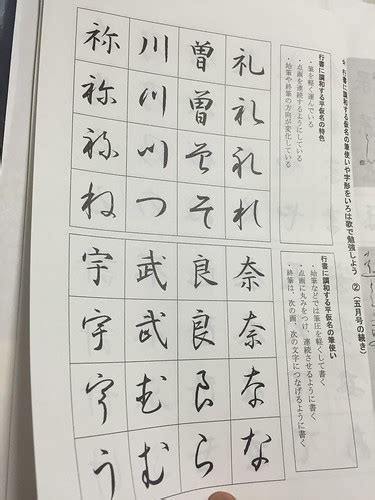 行書に調和する仮名の筆使いや字形をいろは歌で勉強しよう ②（五月号の続き）
行書に調和する平仮名の特色
・筆を軽く運んでいる
・点画を連続するようにしている
・始筆や終筆の方向が変化している
礼礼礼れ
曽曽曽そ
川川川つ
祢祢祢ね
行書に調和する平仮名の筆使い
・始筆などでは筆圧を軽くして書く
・点画に丸みをつけ、連続させるように書く
・終筆は、次の画、次の文字につなげるように書く
奈奈奈な
良良良ら
武武武む
宇宇宇う